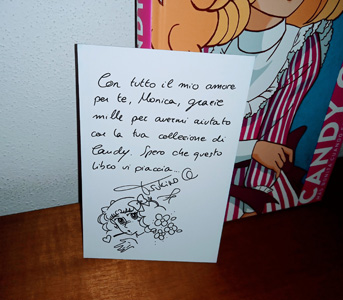 Con tutto il mio amore
per te, Monica, grazie
mille per avermi aiutato
con la tua collezione di
Candy. Spero che questo
libro vi piaccia...
CANDY
CANDY C